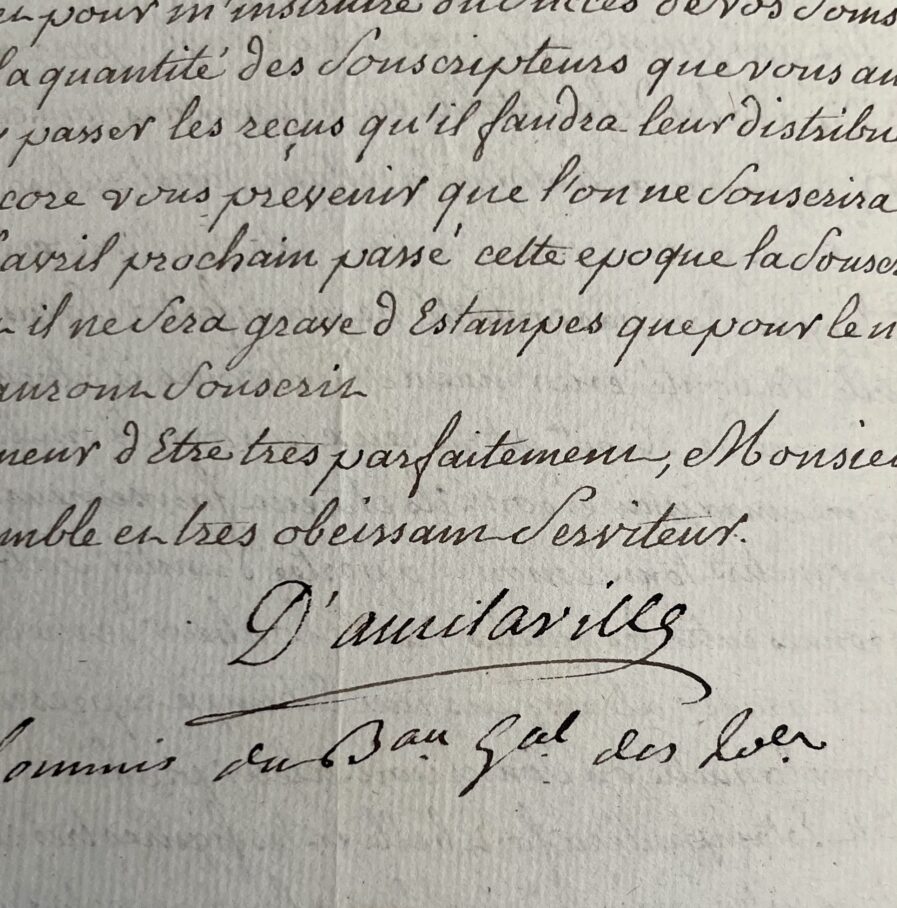 et pour m'instruire du succes de vos soins
la quantité des Souscripteurs que vous au
passer les reçus qu'il faudra leur distribu
core vous prevenir que l'on ne Souscrira
avril prochain passé cette epoque la Sousc
il ne Sera gravé d'Estampes que pour le n
auront Souscrit
neur d'Etre tres parfaitement, Monsieu
mble et tres obeissant Serviteur.
D'aucilaville
Commis du Bau Gal des